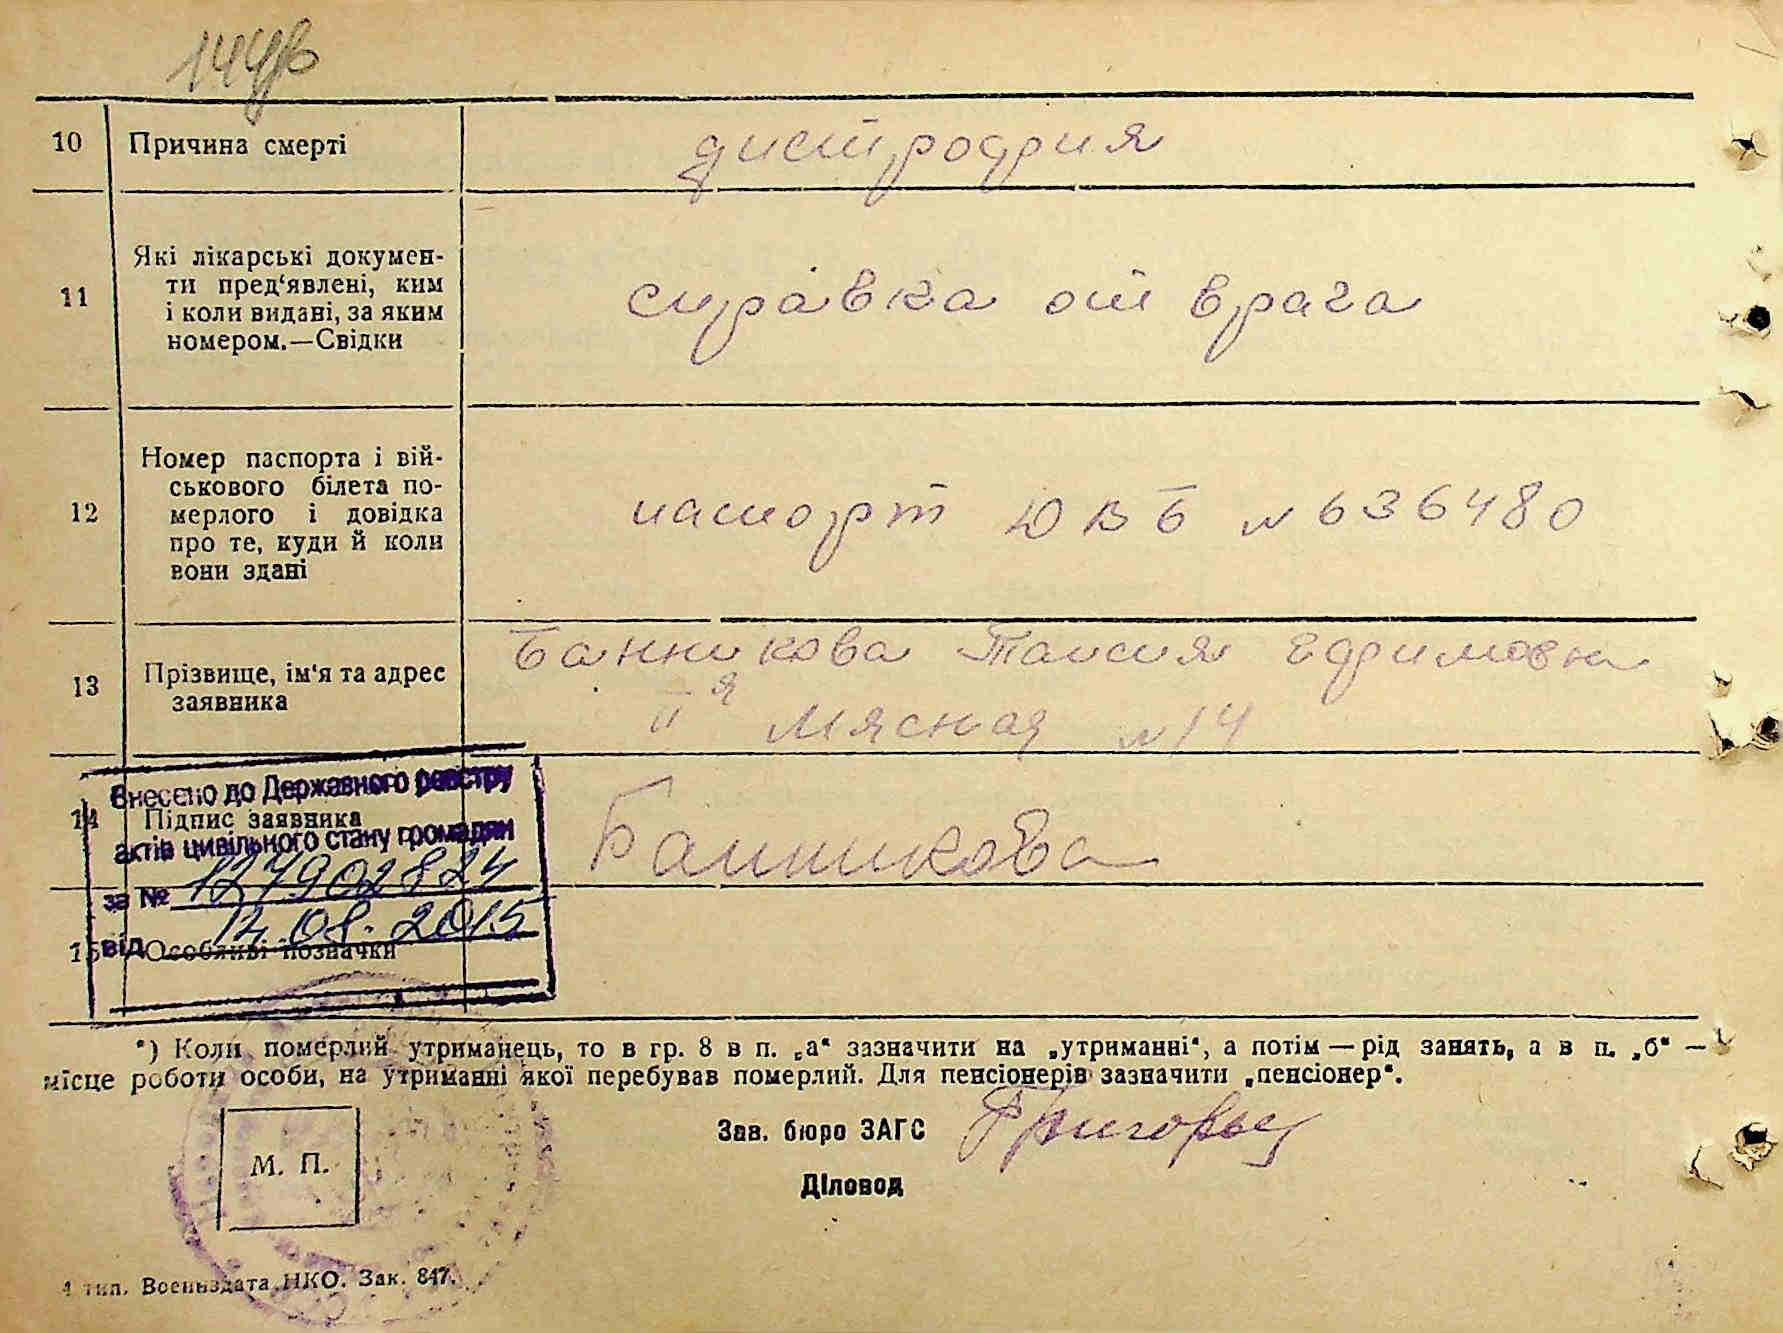 144
10 Причина смерті дистрофия
11 Які лікарські докумен-
ти пред'явлені, ким
і коли видані, за яким
номером.—Свідки
справка от врача
12 Номер паспорта і вій-
ськового білета по-
мерлого і довідка
про те, куди й коли
вони здані
паспорт ЮВБ № 636480
13 Прізвище, ім'я та адрес
заявника
Банникова Таисия Ефимовн
II я Мясная № 14
14 Підпис заявника Банникова
Внесено до Державного реєстру
актів цивільного стану громадян
за № 127902824
від 14.08.2015
15 Особливі позначки
*) Коли померлий утриманець, то в гр. 8 в п. „а“ зазначити на „утриманні“, а потім — рід занять, а в п. „б“ —
місце роботи особи, на утриманні якої перебував померлий. Для пенсіонерів зазначити „пенсіонер“.
Зав. бюро ЗАГС
Діловод
М. П.
4 тип. Воениздата НКО. Зак. 847.